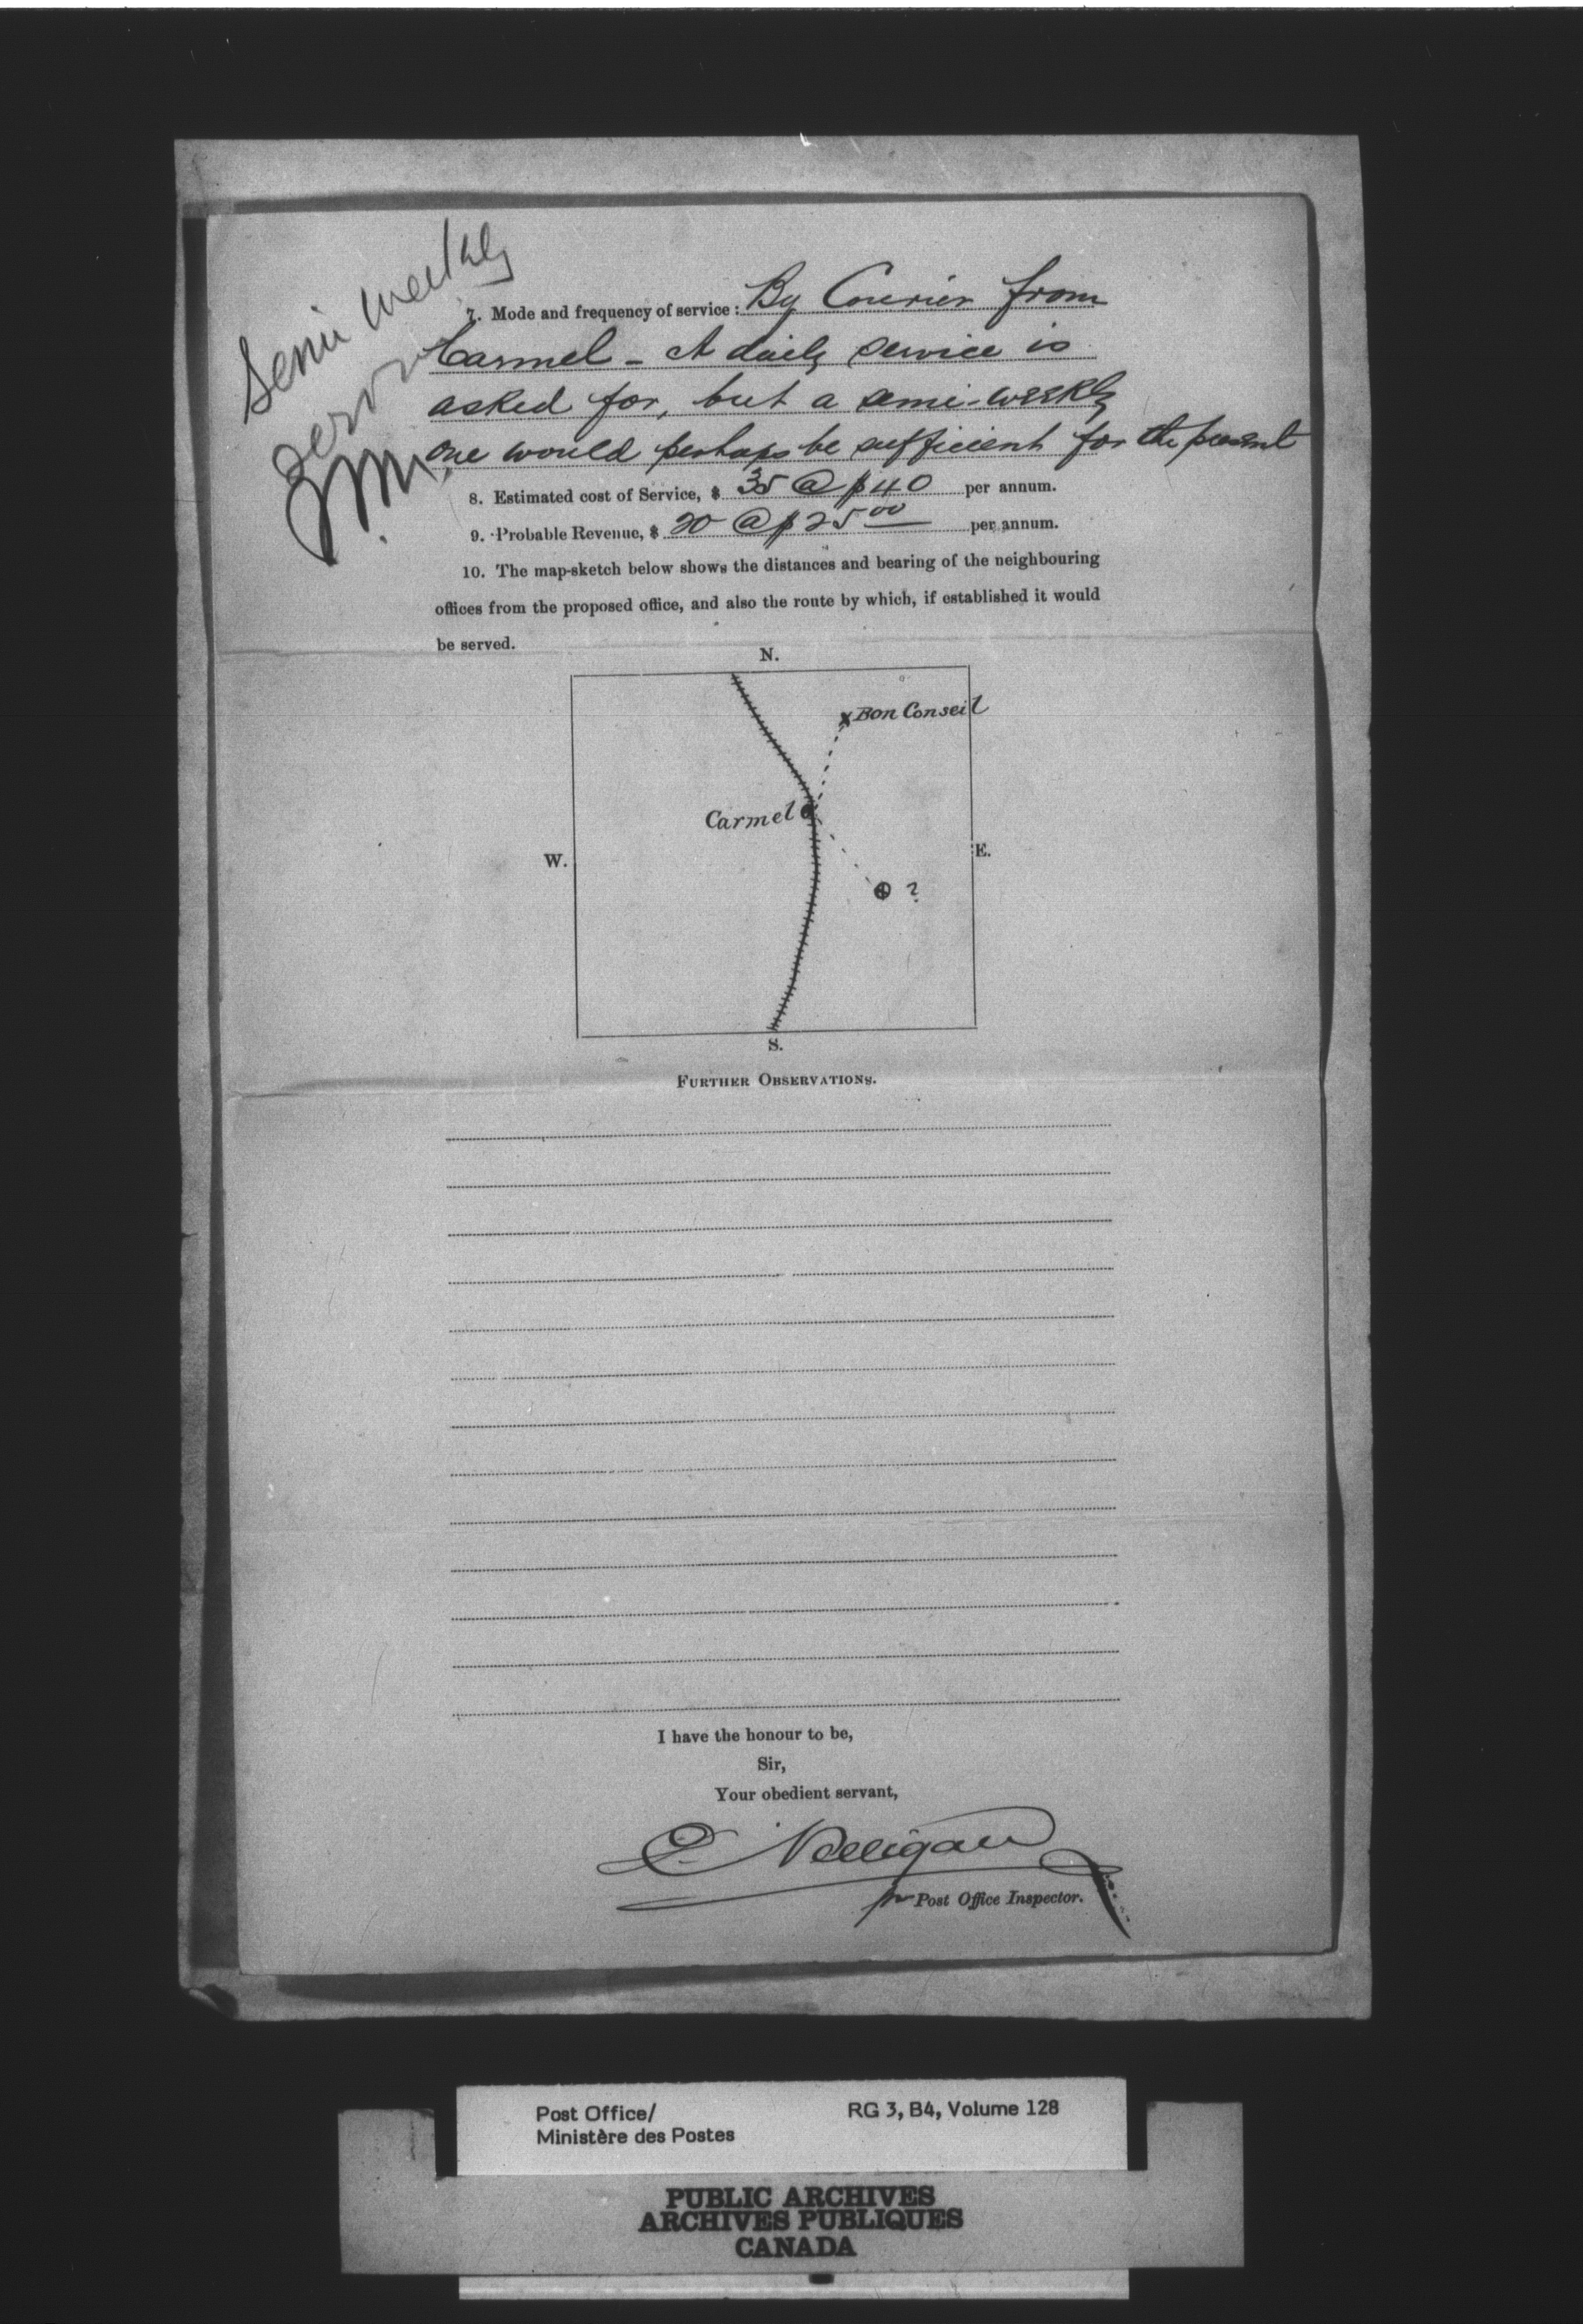 Semi weekly
7. Mode and frequency of service: By Courier from
Carmel - A daily service is
asked for, but a semi-weekly
one would perhaps be sufficient for the present
8. Estimated cost of Service, $ 35 @ $40 per annum.
9. Probable Revenue, $ 20 @ $25 00 per annum.
10. The map-sketch below shows the distances and bearing of the neighbouring
offices from the proposed office, and also the route by which, if established it would
be served.
N.
x Bon Conseil
Carmel
W.
E.
?
S.
FURTHER OBSERVATIONS.
I have the honour to be,
Sir,
Your obedient servant,
E Nelligan
pr Post Office Inspector.
Post Office/
Ministère des Postes
RG 3, B4, Volume 128
PUBLIC ARCHIVES
ARCHIVES PUBLIQUES
CANADA